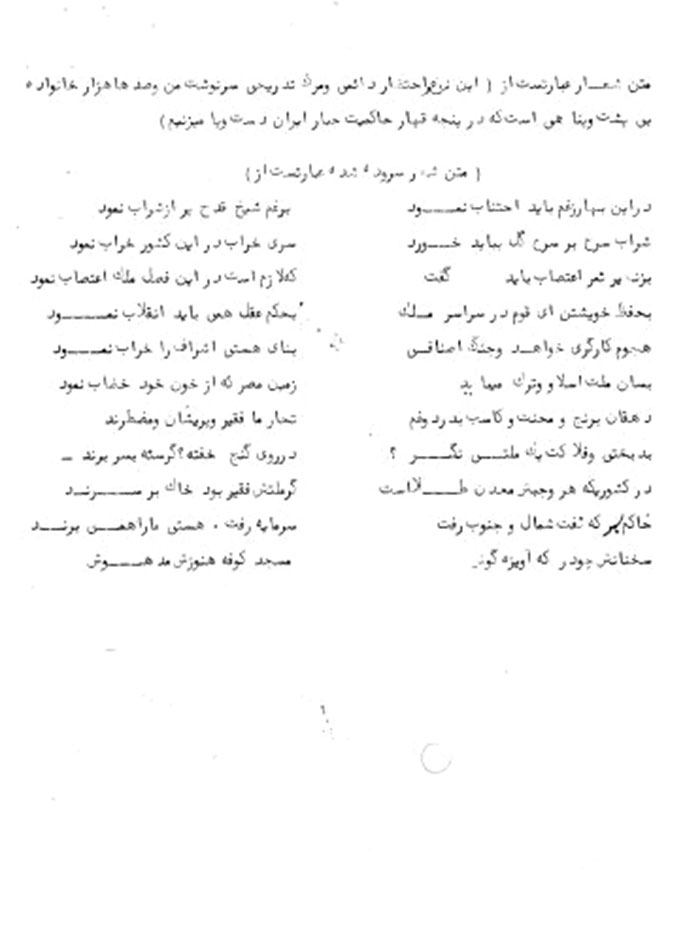 متن شعار عبارتست از ( این نوع احتضار دائمی ومرگ تدریجی سرنوشت من وصدها هزار خانواده
بی پشت وپنا هی است که در پنجه قهار حاکمیت جبار ایران دست وپا میزنیم )
( متن شعر سروده شده عبارتست از )
دراین بهارزغم باید اجتناب نمود برغم شیخ قدح پر ازشراب نمود
شراب سرخ بر سرخ گل بباید خورد سری خراب در این کشور خراب نمود
بزنده پر ثمر اعتصاب باید گفت که لازم است در این فصل ملک اعتصاب نمود
بحفظ خویشتن ای قوم در سراسر ملک بحکم عقل همی باید انقلاب نمود
هجوم کارگری خواهد وجنگ اصنافی بنای هستی اشراف را خراب نمود
بسان ملت اسلا و وترک میباید زمین مصر که از خون خود خضاب نمود
دهقان برنج و محنت و کاسب بدرد وغم تجار ما فقیر وپریشان ومضطرند
بدبختی وفلاکت یک ملتی نگر ؟ درروی گنج خفته؟گرسنه بسر برند
در کشوریکه هر وجبش معدن طلااست گرملتش فقیر بود خاک بر سرند
خاکم بسر که نفت شمال و جنوب رفت سرمایه رفت ، هستی ماراهمی برند
سخنانش چو در که آویزه گوش مسجد کوفه هنوزش مدهوش